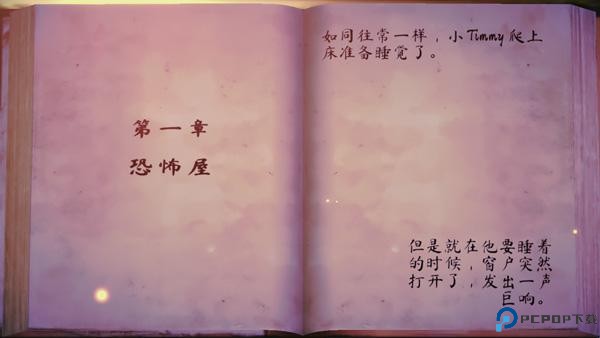 第一章
恐怖屋
如同往常一样，小Timmy爬上
床准备睡觉了。
但是就在他要睡着
的时候，窗户突然
打开了，发出一声
巨响。
PCPOP下载